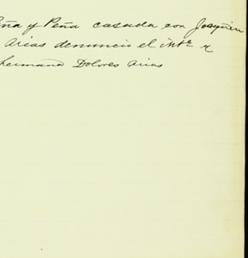 ña y Peña casada con Joaquin
Arias denuncio el int.e y
hermana Dolores Arias